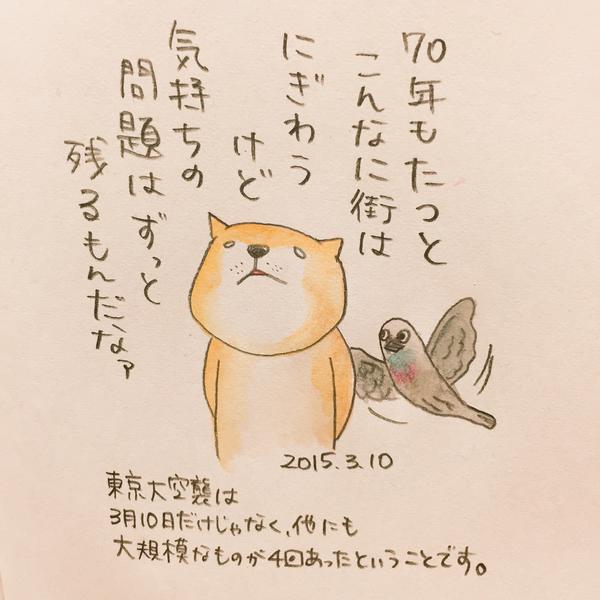 70年もたつと
こんなに街は
にぎわう
けど
気持ちの
問題はずっと
残るもんだなァ
2015.3.10
東京大空襲は
3月10日だけじゃなく、他にも
大規模なものが4回あったということです。